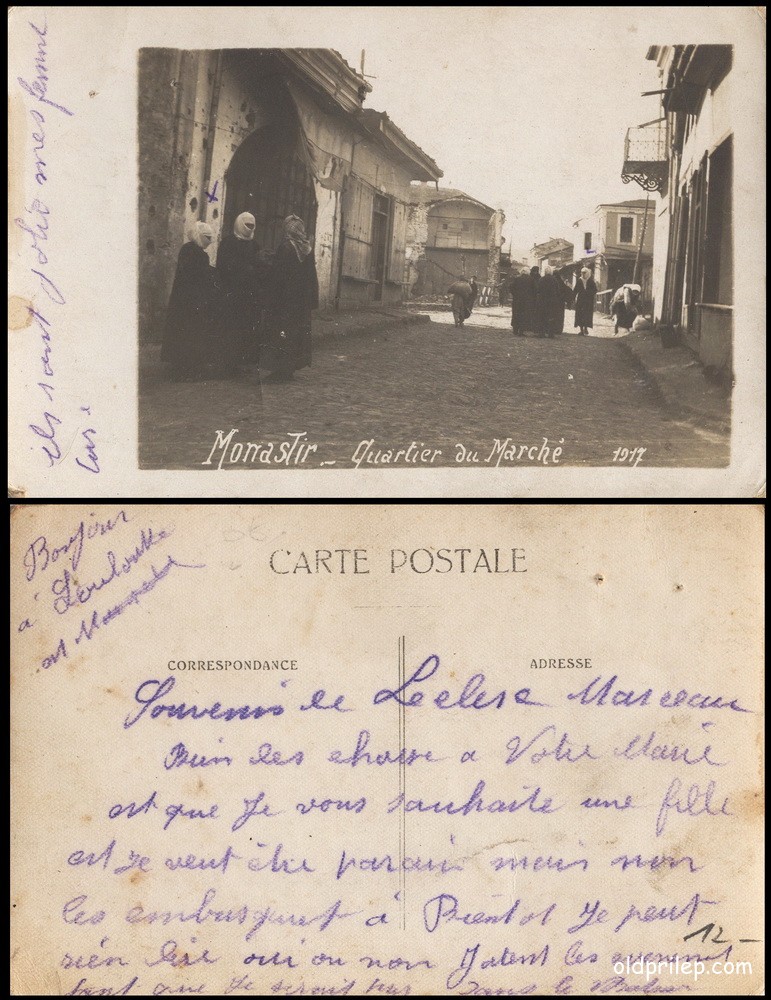 ils sont jolie mes femme
Monastir - Quartier du Marché 1917
Bonjour
à Louloutte
et
CARTE POSTALE
CORRESPONDANCE
ADRESSE
Souvenir de Leclerc Marceau
Bien des chosse a Votre Marie
et que Je vous souhaite une fille
et Je veut être parain mais non
les embusquet à Bientot Je peut
rien dire oui ou non J'atent les
12-
tant que Je serait pas dans le
oldprilep.com